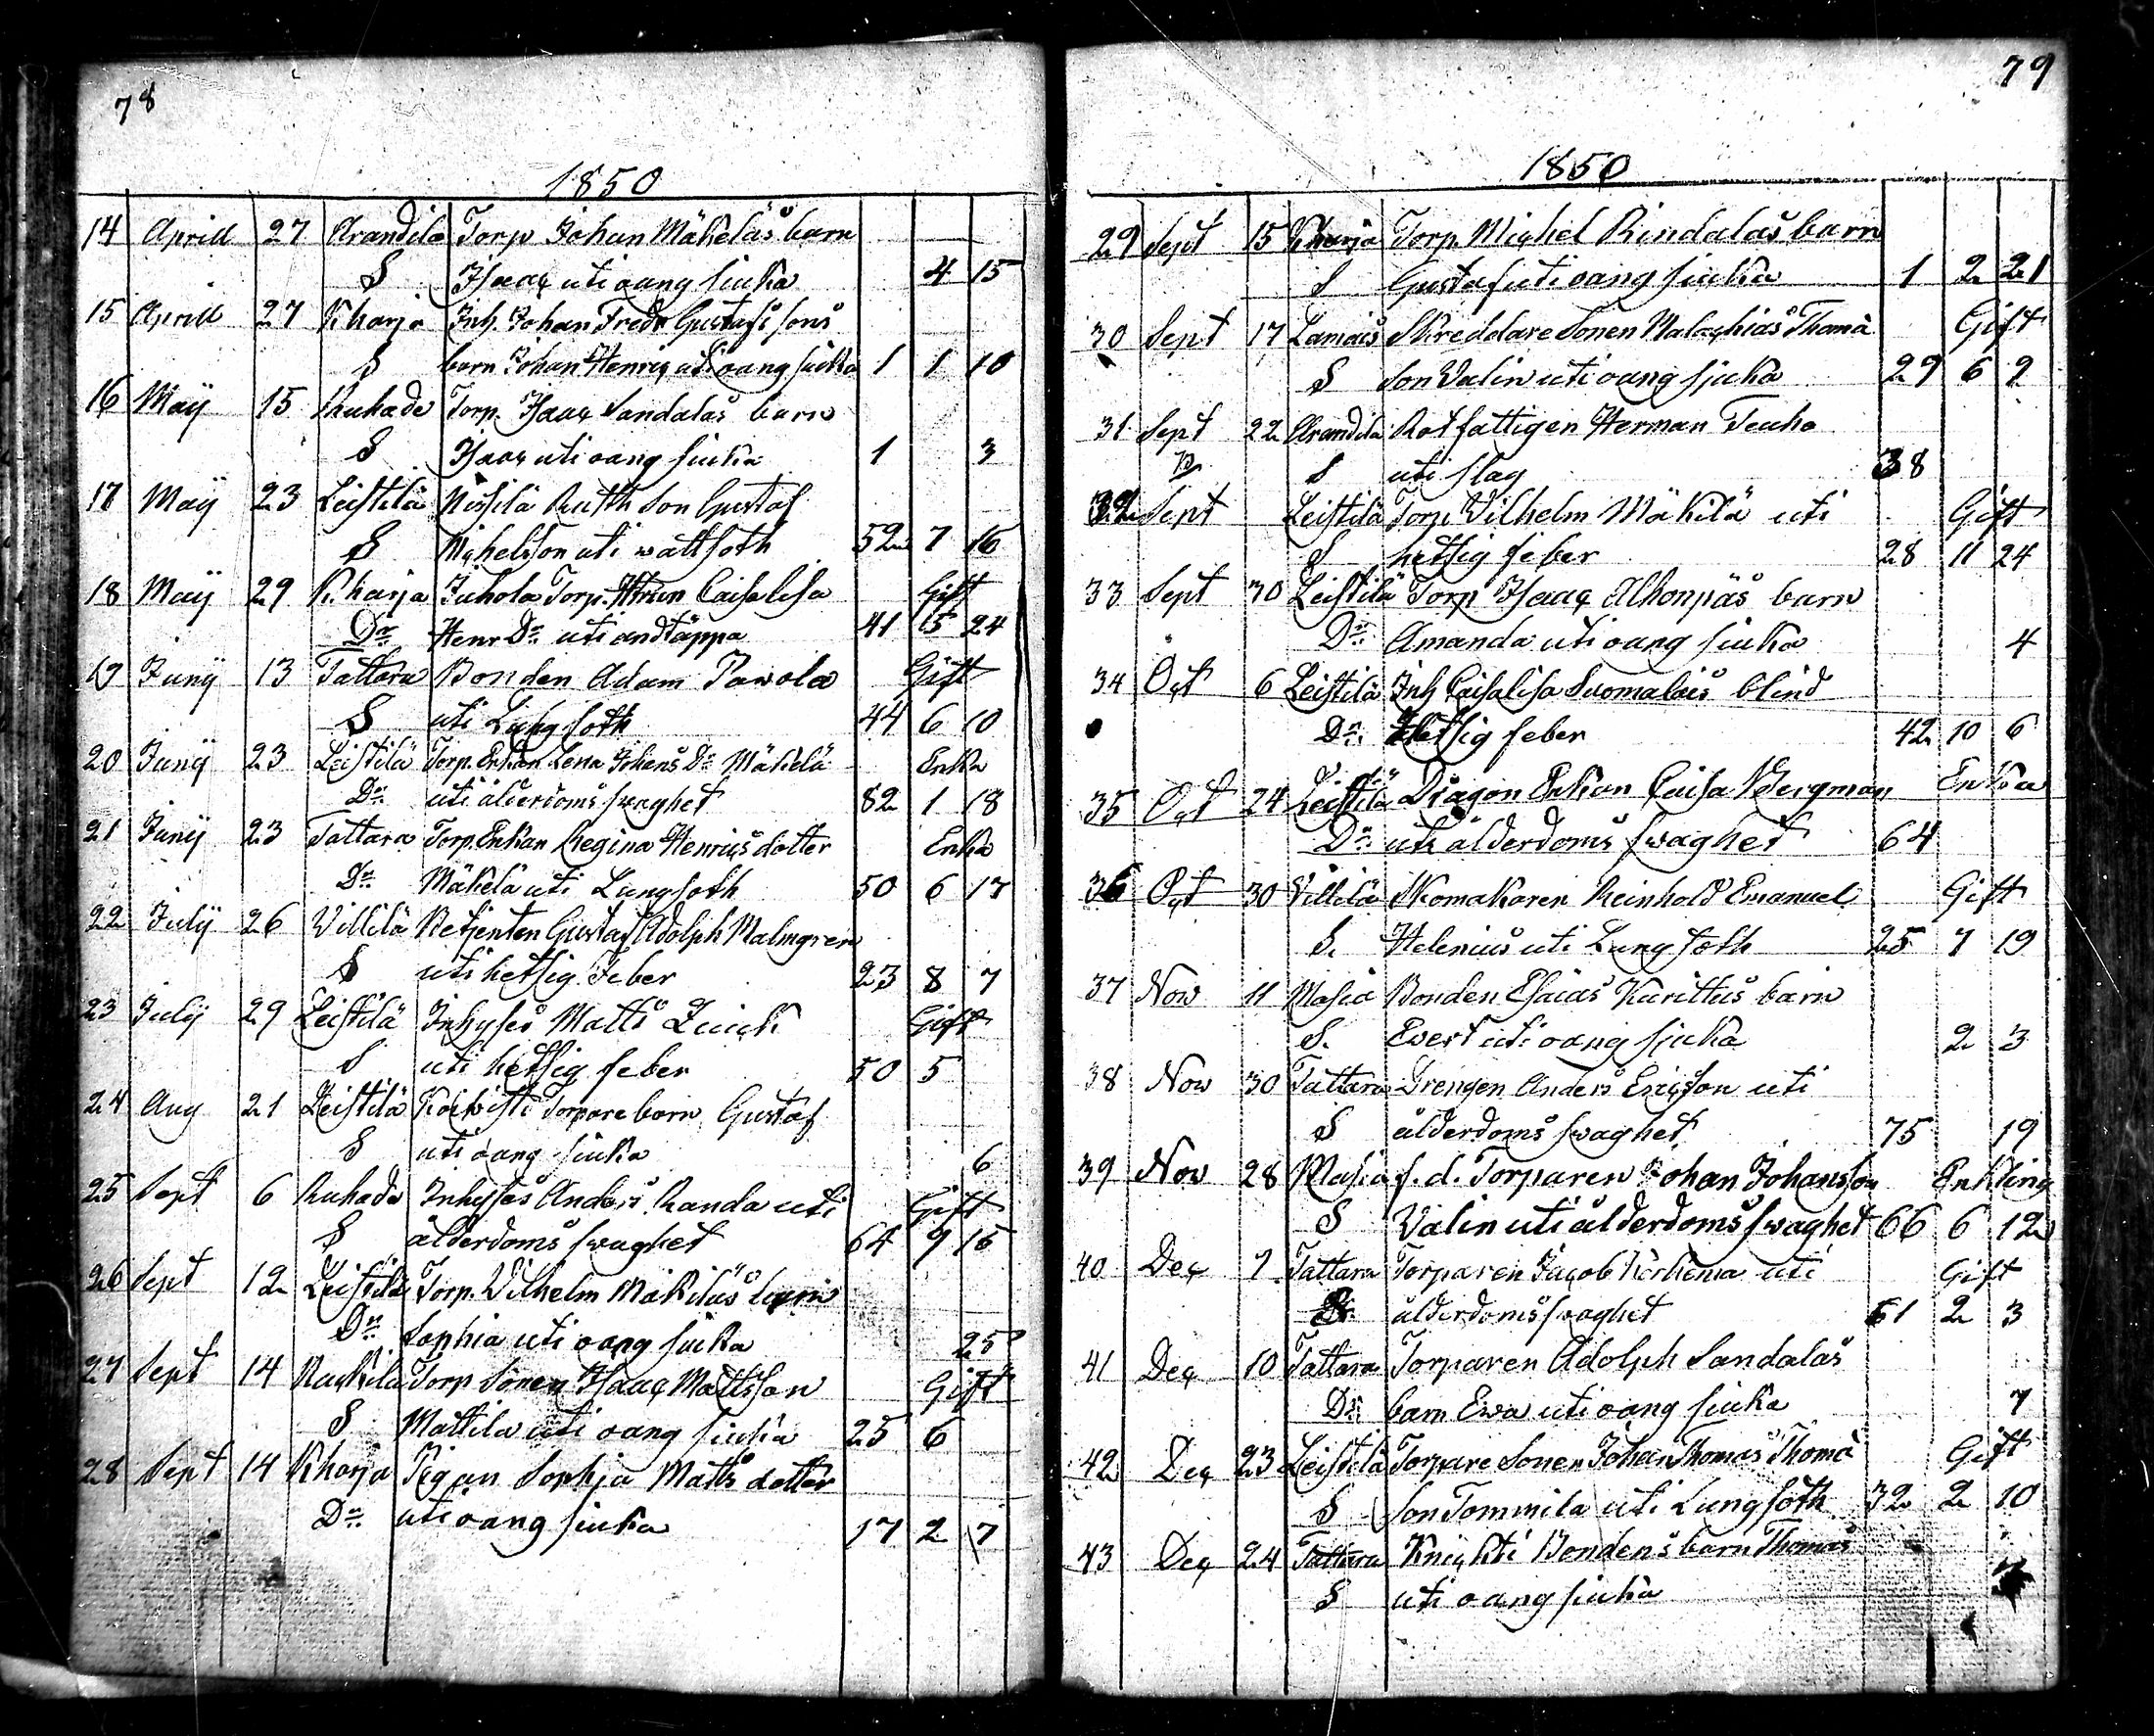 78
1850
14 Aprill 27 Arandila Torp Johan Mäkeläs barn
S Isaac uti oang siuka 4 15
15 Aprill 27 Kharja Inh. Johan Fredr Gustafs sons
S barn Johan Henric uti oang siuka 1 1 10
16 Maij 15 Ruhade Torp. Isaac Sandalas barn
S Isaac uti oang siuka 1 3
17 Maij 23 Leistilä Nissilä Ruth Son Gustaf
S Michelsson uti wattsoth 52 7 16
18 Maij 29 Kharja Juhola Torp. Hrun Caisalisa Gift
Dr Henr Dr uti andtäppa 41 15 24
19 Junij 13 Tattara Bonden Adam Pawola Gift
S uti Lungsoth 44 6 10
20 Junij 23 Leistilä Torp. Enkan Lena Johans Dr Mäkelä Enka
Dr uti ålderdoms swaghet 82 1 18
21 Junij 23 Tattara Torp. Enkan Regina Henrics dotter Enka
Dr Mäkelä uti Lungsoth 50 6 17
22 Julij 26 Villilä Betjenten Gustaf Adolph Malmgren
S uti hetsig Feber 23 8 7
23 Julij 29 Leistilä Inhyses Matts Gift
S uti hetsig feber 50 5
24 Aug 21 Leistilä Koiwisto Torpare barn Gustaf
S uti oang siuka 6
25 Sept 6 Ruhade Inhyses Anders Randa uti Gift
S ålderdoms swaghet 64 9 15
26 Sept 12 Leistilä Torp. Vilhelm Mäkiläs barn
Dr Sophia uti oang siuka 25
27 Sept 14 Torp Sonen Isaac Mattsson Gift
S Mattila uti oang siuka 25 6
28 Sept 14 Kharja Pigan Sophja Matts dotter
Dr uti oang siuka 17 2 7
79
1850
29 Sept 15 Kharja Torp. Michel Rindalas barn
S Gustaf uti oang siuka 1 2 21
30 Sept 17 Lamais Skreddare Sonen Malachias Thoma Gift
S Son Valin uti oang sjuka 29 6 2
31 Sept 22 Arandila Rotfattigen Herman Teuho
S uti slag 38
32 Sept Leistilä Torp. Vilhelm Mäkilä uti Gift
S hetsig feber 28 11 24
33 Sept 30 Leistilä Torp Isaac Alhonpäs barn
Dr Amanda uti oang siuka 4
34 Oct 6 Leistilä Inh Caisalisa Suomalais blind
Dr. Hetsig feber 42 10 6
35 Oct 24 Leistilä Dragon Enkan Caisa Bergman Enka
Dr uti ålderdoms swaghet 64
36 Oct 30 Villilä Skomakaren Reinhold Emanuel Gift
S. Helenius uti Lungsoth 25 7 19
37 Nov 11 Masia Bonden Esaias Kurittus barn
S. Evert uti oang siuka 2 3
38 Nov 30 Tattara Drengen Anders Ericsson uti
S ålderdoms swaghet 75 19
39 Nov 28 Masia f.d. Torparen Johan Johansson Enkling
S Valin uti ålderdoms swaghet 66 6 12
40 Dec 7 Tattara Torparen Jacob uti Gift
S ålderdoms swaghet 61 2 3
41 Dec 10 Tattara Torparen Adolph Sandalas
Dr barn Ewa uti oang siuka 7
42 Dec 23 Leistilä Torpare Sonen Johan Thomas Thoma Gift
S Son Tommila uti Lungsoth 32 2 10
43 Dec 24 Tattara Knichti Bondens barn Thomas
S uti oang siuka